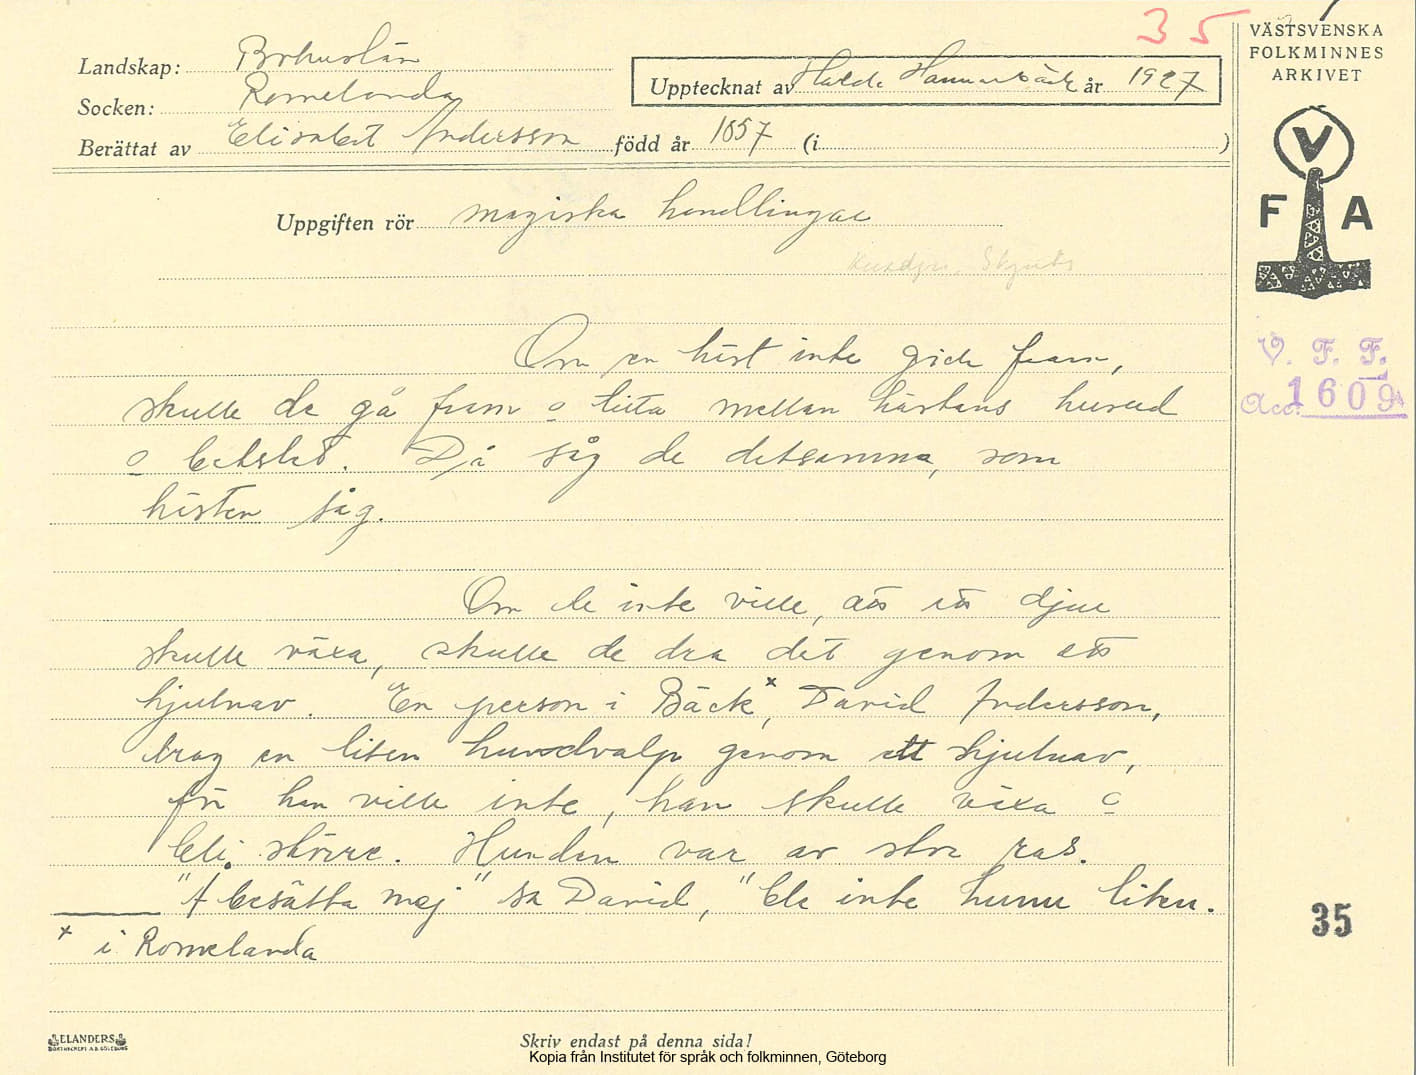 35
VÄSTSVENSKA
FOLKMINNES
ARKIVET
Landskap: Bohuslän
Socken: Romelanda
Upptecknat av Halda Hammarbäck år 1927
Berättat av Elisabet Andersson född år 1857 (i )
V
F A
Uppgiften rör magiska handlingar
Om en häst inte gick fram,
skulle de gå fram o titta mellan hästens huvud
o betslet. Då såg de detsamma, som
hästen såg.
V. F. F.
Acc. 1609
Om de inte ville, att ett djur
skulle växa, skulle de dra det genom ett
hjulnav. En person i Bäck x, David Andersson,
drog en liten hundvalp genom ett hjulnav,
för han ville inte, han skulle växa o
bli större. Hunden var av stor ras.
"Å besätta mej" sa David, "ble inte hunn liten.
x i Romelanda
35
ELANDERS
Skriv endast på denna sida!
Kopia från Institutet för språk och folkminnen, Göteborg